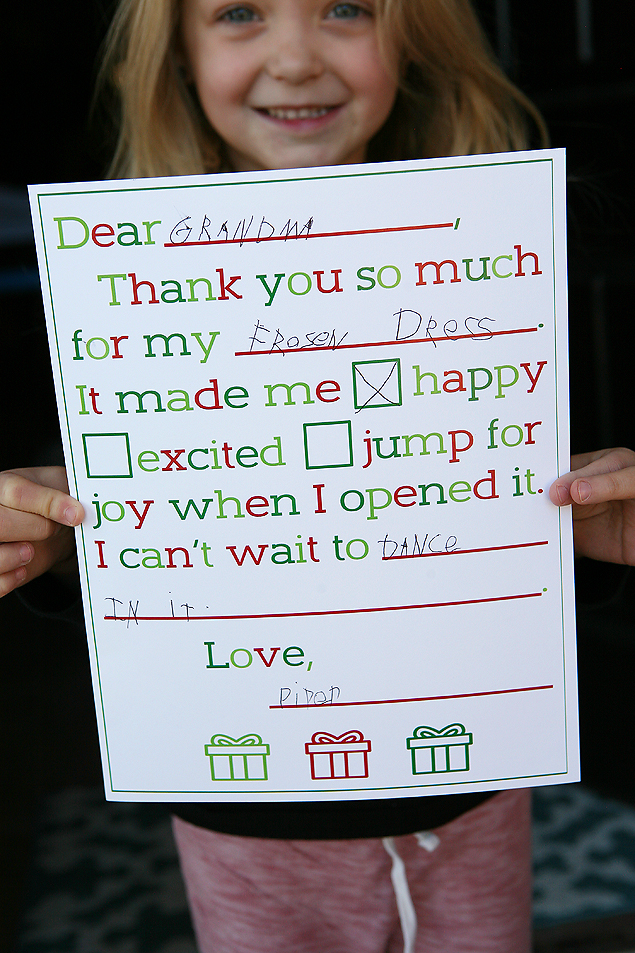 Dear GRANDMA,
Thank you so much
for my FROSEN DRess.
It made me ☒ happy
☐ excited ☐ jump for
joy when I opened it.
I can't wait to DANCe
IN it.
Love,
PiPeR